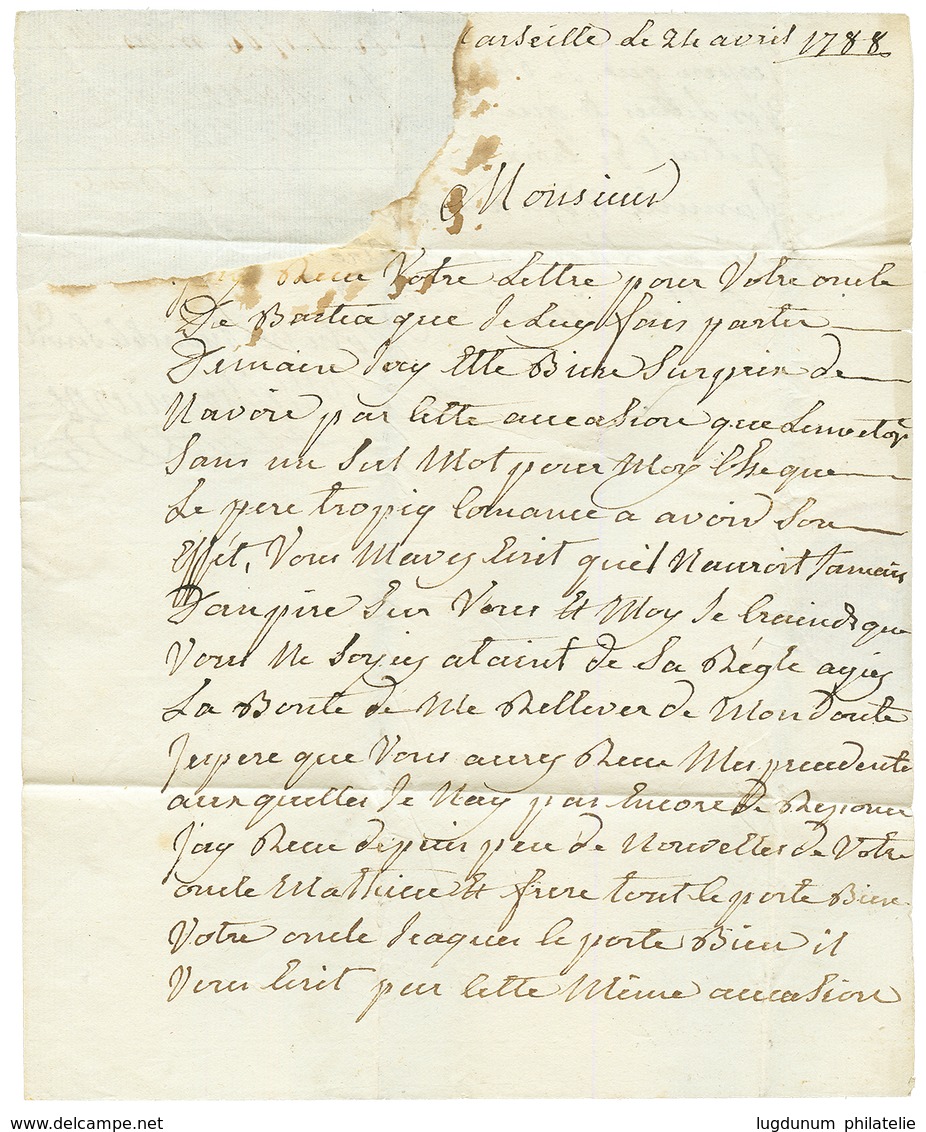 arseille le 24 avril 1788
Monsieur
jay Receu Votre Lettre pour Votre oncle
De Bastia que Je Luy fais partir
Demain Jay Ette Bien Surpris de
Navoir par Cette aucasion que Lenvelop
Sans un Sul Mot pour Moy Esse que
Le pere tropiq Comance a avoir Son
Effét, Vous Mavez Ecrit quil Nauroit Jamais
Danpire Sur Vous Et Moy Je Crainds que
Vous Ne Soyiez ataint de Sa Régle ayiez
La Bonte de Me Rellever de Mon Doute
Jespere que Vous aurez Receu Mes precedente
auxquelles Je Nay pas Encore De Reponce
Jay Receu depuis peu de Nouvelles de Votre
oncle Mathieu Et frere tout Se porte Bien
Votre oncle Jeaques Se porte Bien il
Vous Ecrit par Cette Même aucasion
www.delcampe.net
lugdunum philatelie